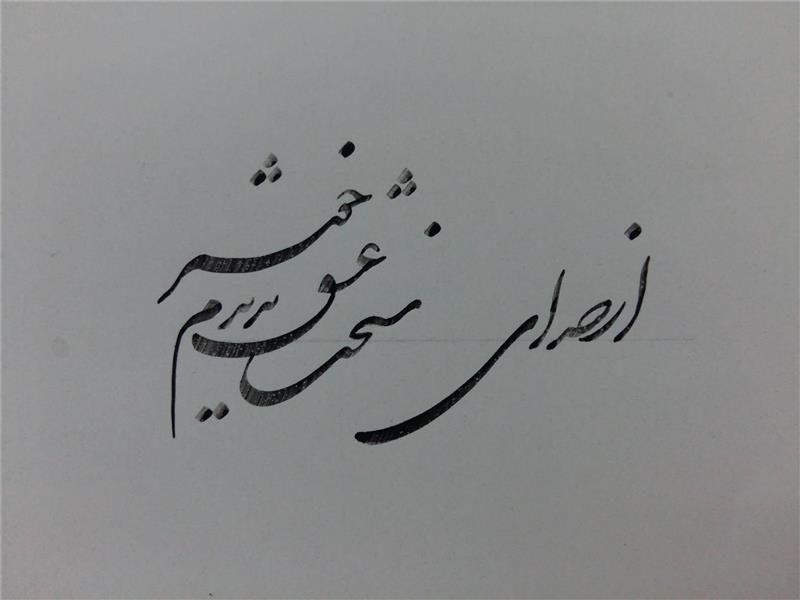 از صدای سخن عشق ندیدم خوشتر